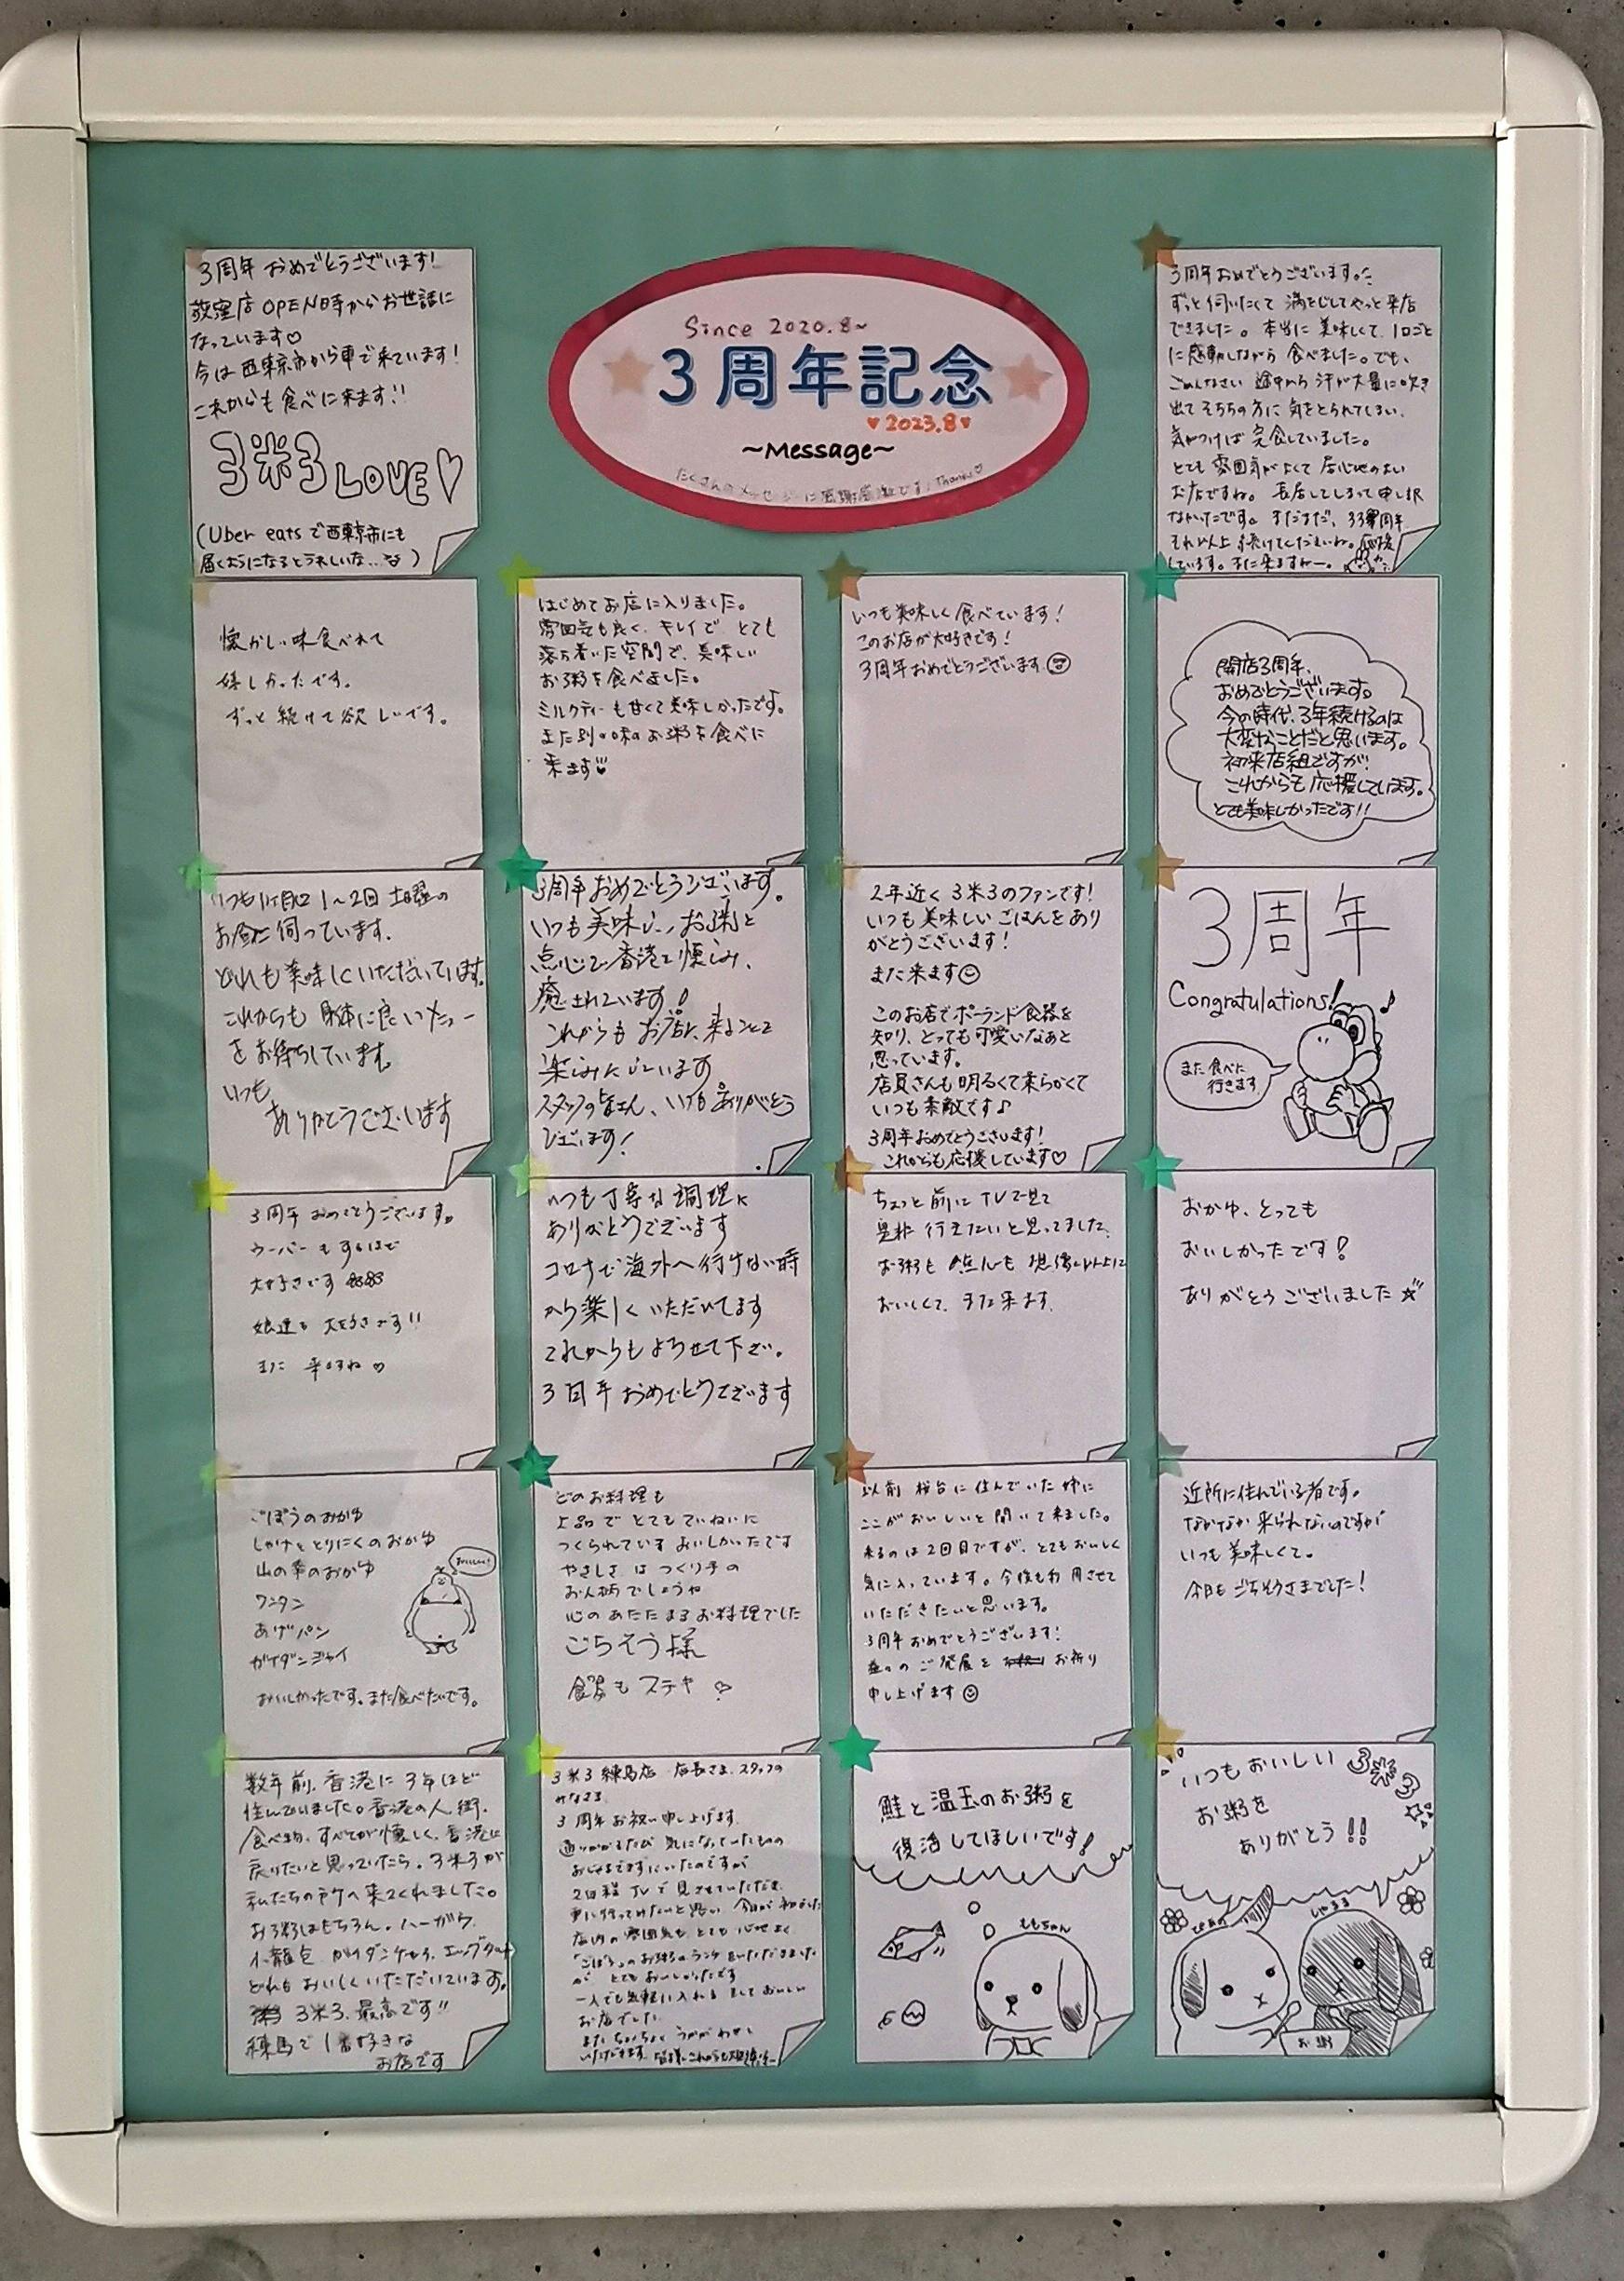 3周年 おめでとうございます!
荻窪店 OPEN時からお世話に
なっています♡
今は西東京市から車で来ています!
これからも食べに来ます!!
3米3 LOVE♡
(Uber eatsで西東京市にも
届くようになるとうれしいな…)
Since 2020.8~
3周年記念
♥2023.8♥
~Message~
たくさんのメッセージに感謝感激です! Thanks♡
3周年おめでとうございます。
ずっと伺いたくて 満をじしてやっと来店
できました。本当に 美味しくて、1口ごと
に感動しながら 食べました。でも、
ごめんなさい 途中から 汗が大量に吹き
出て そちらの方に 気をとられてしまい、
気がつけば 完食していました。
とても 雰囲気がよくて 居心地のよい
お店ですね。長居してしまって申し訳
なかったです。まだまだ、33周年
それ以上 続けてくださいね。応援
しています。また来ますねー。
懐かしい味食べれて
嬉しかったです。
ずっと続けて欲しいです。
はじめてお店に入りました。
雰囲気も良く、キレイで とても
落ち着いた空間で、美味しい
お粥を食べました。
ミルクティーも甘くて美味しかったです。
また別の味のお粥を食べに
来ます
いつも美味しく食べています!
このお店が大好きです!
3周年おめでとうございます
開店3周年、
おめでとうございます。
今の時代、3年続けるのは
大変なことだと思います。
初来店組ですが!
これからも応援しています。
とても美味しかったです!!
いつも1ヶ月に1~2回 土曜の
お昼に伺っています。
どれも美味しくいただいています。
これからも 身体に良いメニュー
をお待ちしています。
いつも
ありがとうございます
3周年おめでとうございます。
いつも美味しいお粥と
点心で香港を懐しみ、
癒されています!
これからもお店に来ることを
楽しみにしています
スタッフの皆さん、いつもありがとう
ございます!
2年近く 3米3のファンです!
いつも美味しいごはんをあり
がとうございます!
また来ます☺
このお店でポーランド食器を
知り、とっても可愛いなぁと
思っています。
店員さんも明るくて柔らかくて
いつも素敵です♪
3周年おめでとうございます!
これからも応援しています♡
3周年
Congratulations!
また食べに
行きます
3周年 おめでとうございます。
ウーバーもするほど
大好きです
娘達も 大好きです!!
また 来ますね♡
いつも丁寧な調理に
ありがとうございます
コロナで海外へ行けない時
から楽しくいただいてます
これからもよろせて下さい。
3周年おめでとうございます
ちょっと前に TVで見て
是非 行きたいと思ってました。
お粥も 点心も 想像以上に
おいしくて、また来ます。
おかゆ、とっても
おいしかったです!
ありがとうございました☆
ごぼうのおかゆ
しゃけととりにくのおかゆ
山の幸のおかゆ
ワンタン
あげパン
ガイダンジャイ
おいしかったです。また食べたいです。
どのお料理も
上品で とてもていねいに
つくられています おいしかったです
やさしさ は つくり手の
お人柄でしょうね
心のあたたまるお料理でした
ごちそう様
食器もステキ♡
以前 桜台に住んでいた姉に
ここがおいしいと聞いて来ました。
来るのは2回目ですが、とてもおいしく
気に入っています。今後も利用させて
いただきたいと思います。
3周年おめでとうございます!
益々のご発展を お祈り
申し上げます☺
近所に住んでいる者です。
なかなか来られないのですが
いつも美味しくて。
今日もごちそうさまでした!
数年前、香港に3年ほど
住んでいました。香港の人、街、
食べ物、すべてが懐しく、香港に
戻りたいと思っていたら、3米3が
私たちの所へ来てくれました。
お粥はもちろん、ハーガウ、
小籠包 ガイダンチャイ、エッグタルト
どれもおいしくいただいています。
3米3、最高です!!
練馬で1番好きな
お店です
3米3 練馬店 店長さま、スタッフの
みなさま
3周年お祝い申し上げます。
通りがかるたび 気になっていたものの
2回程 TVで見させていただき
更に行ってみたいと思い 今日が初めてでした
店内の雰囲気も とても心地よく
「ごぼう」のお粥のランチをいただきました
が とてもおいしかったです
一人でも気軽に入れる そしておいしい
お店でした。
また ちょくちょく うかがわせて
いただきます。
鮭と温玉のお粥を
復活してほしいです!
ももちゃん
いつもおいしい 3米3
お粥を
ありがとう!!
お粥